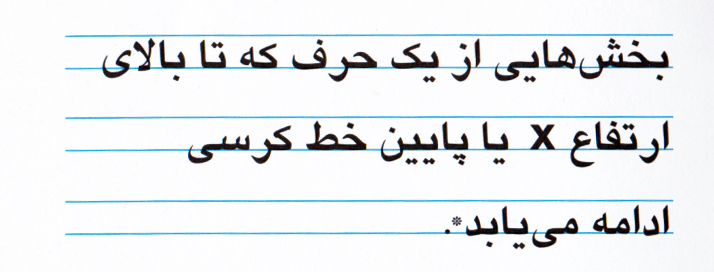 بخش‌هایی از یک حرف که تا بالای
ارتفاع X یا پایین خط کرسی
ادامه می‌یابد*.